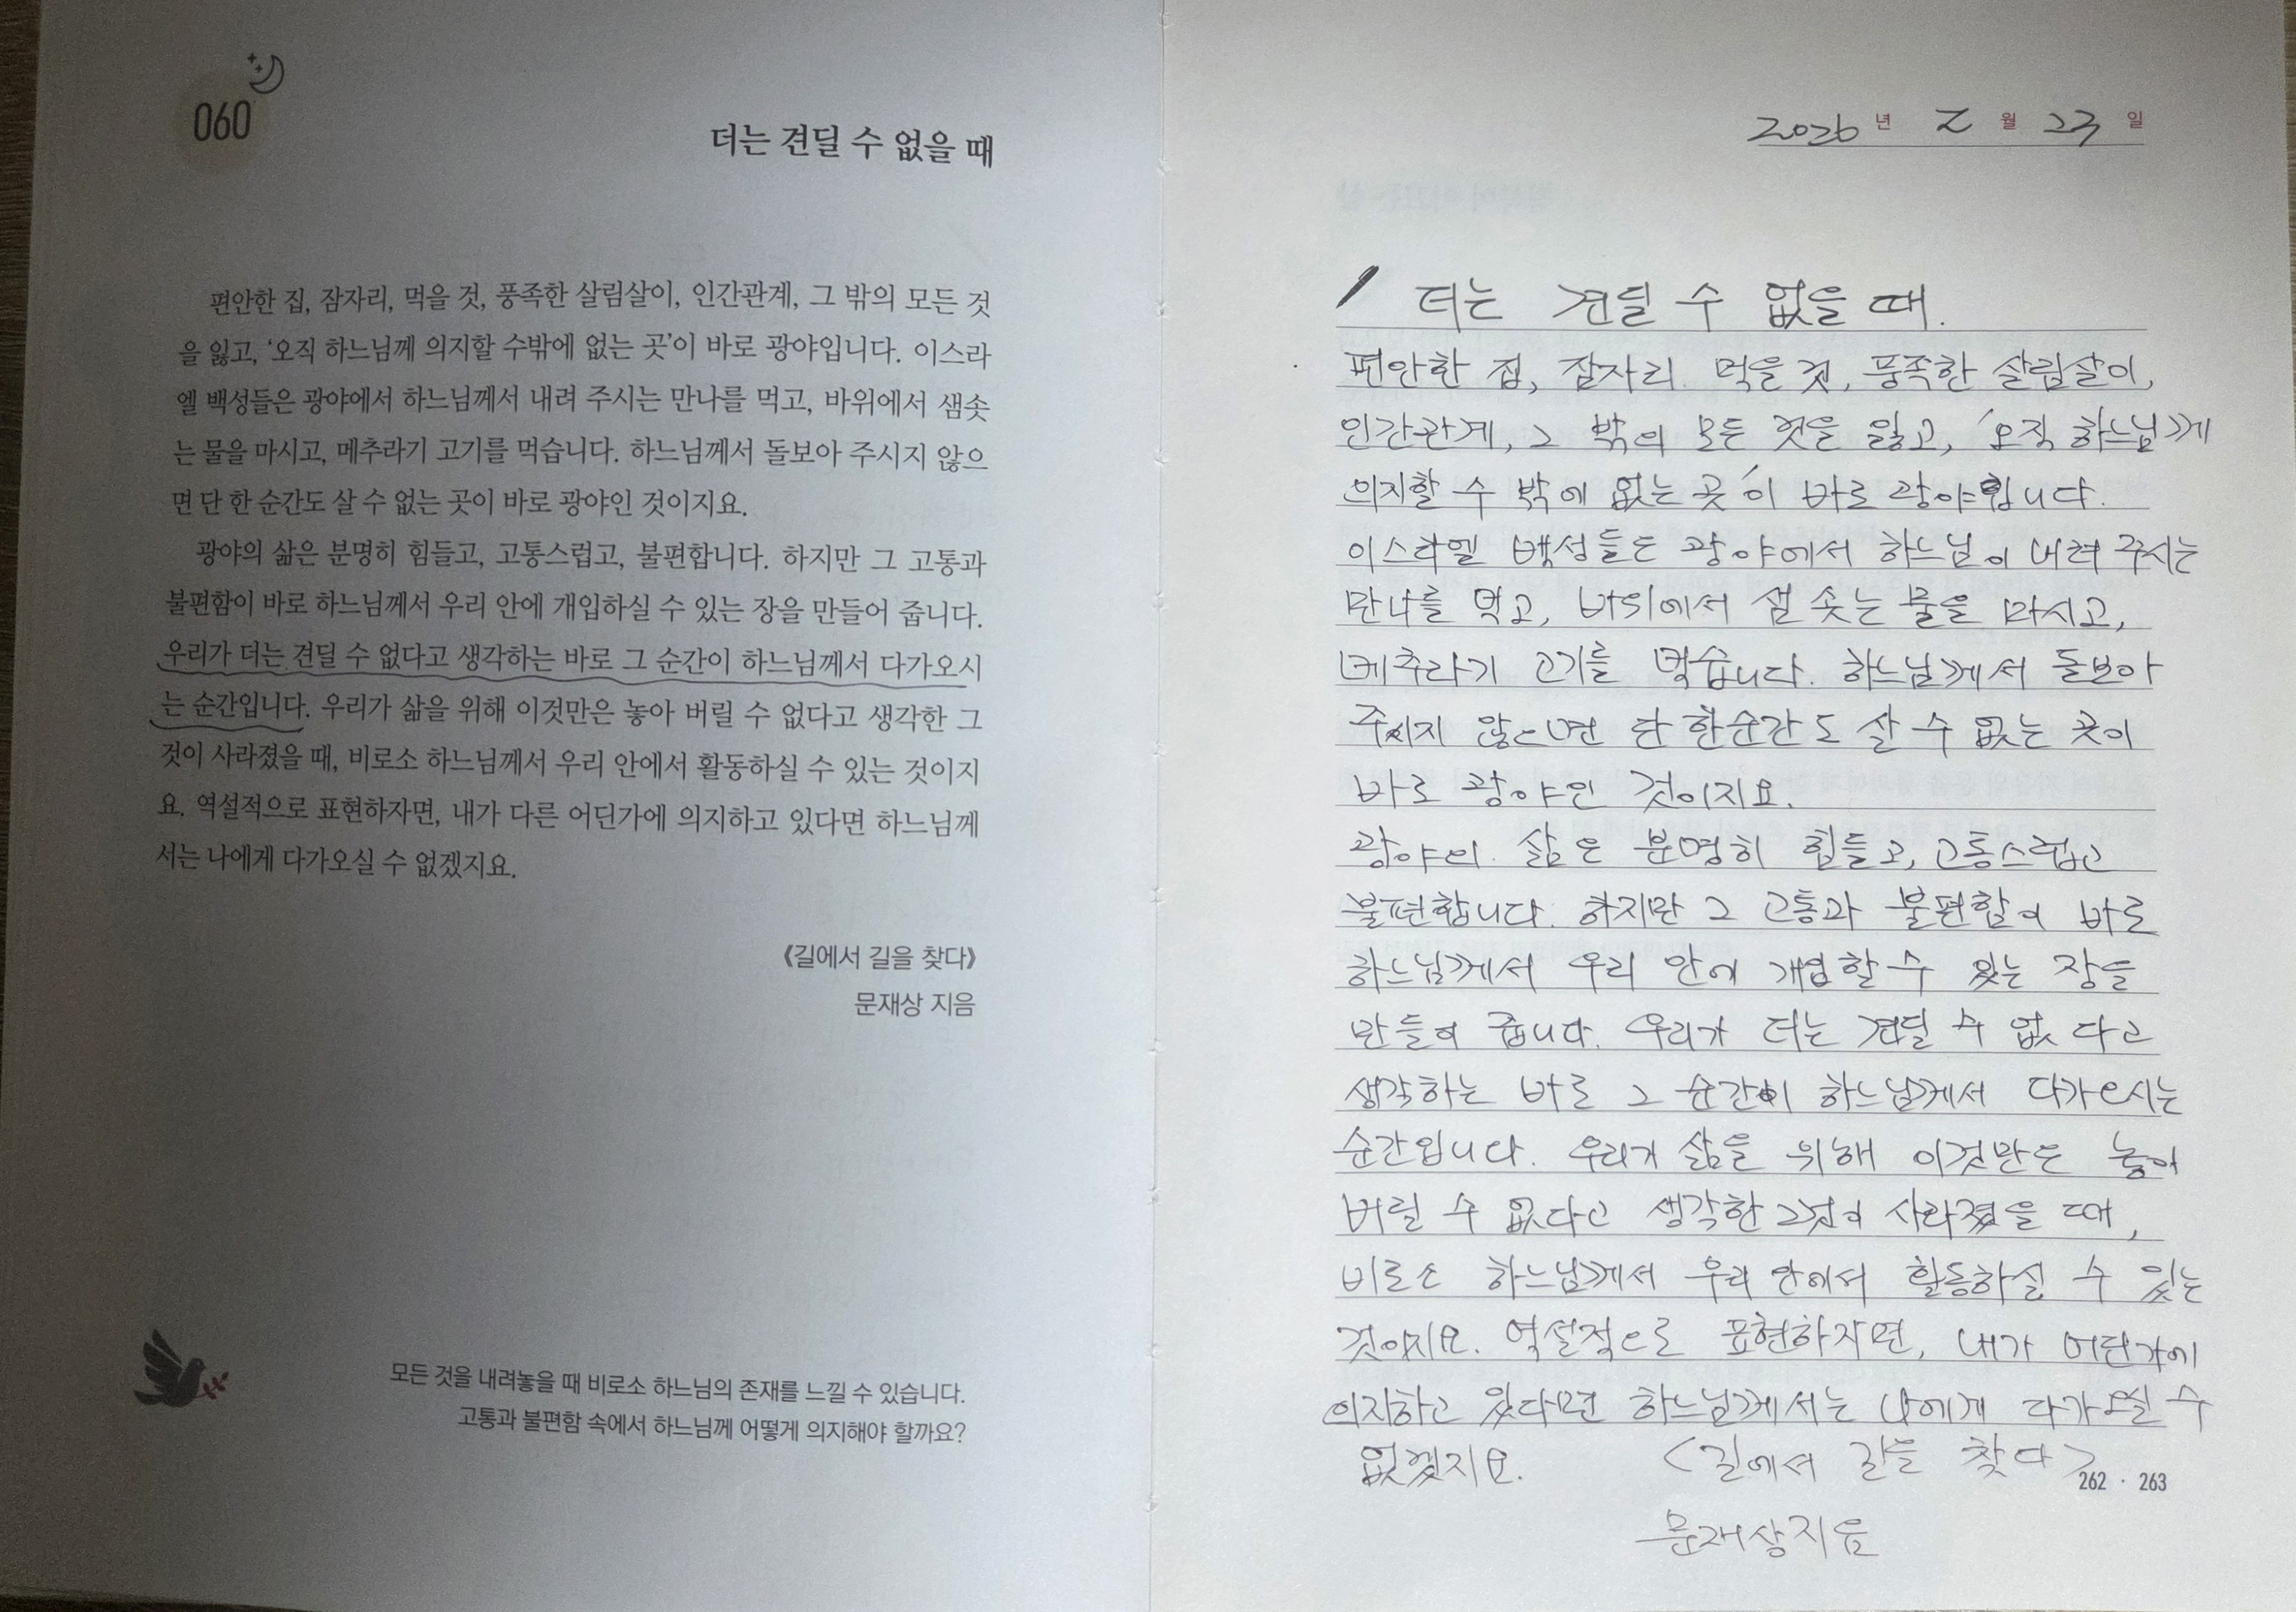 060
더는 견딜 수 없을 때
편안한 집, 잠자리, 먹을 것, 풍족한 살림살이, 인간관계, 그 밖의 모든 것
을 잃고, ‘오직 하느님께 의지할 수밖에 없는 곳’이 바로 광야입니다. 이스라
엘 백성들은 광야에서 하느님께서 내려 주시는 만나를 먹고, 바위에서 샘솟
는 물을 마시고, 메추라기 고기를 먹습니다. 하느님께서 돌보아 주시지 않으
면 단 한 순간도 살 수 없는 곳이 바로 광야인 것이지요.
광야의 삶은 분명히 힘들고, 고통스럽고, 불편합니다. 하지만 그 고통과
불편함이 바로 하느님께서 우리 안에 개입하실 수 있는 장을 만들어 줍니다.
우리가 더는 견딜 수 없다고 생각하는 바로 그 순간이 하느님께서 다가오시
는 순간입니다. 우리가 삶을 위해 이것만은 놓아 버릴 수 없다고 생각한 그
것이 사라졌을 때, 비로소 하느님께서 우리 안에서 활동하실 수 있는 것이지
요. 역설적으로 표현하자면, 내가 다른 어딘가에 의지하고 있다면 하느님께
서는 나에게 다가오실 수 없겠지요.
《길에서 길을 찾다》
문재상 지음
모든 것을 내려놓을 때 비로소 하느님의 존재를 느낄 수 있습니다.
고통과 불편함 속에서 하느님께 어떻게 의지해야 할까요?
2026년 2월 23일
더는 견딜 수 없을 때.
편안한 집, 잠자리 먹을 것, 풍족한 살림살이,
인간관계, 그 밖의 모든 것을 잃고, ‘오직 하느님께
의지할 수 밖에 없는 곳’이 바로 광야입니다.
이스라엘 백성들은 광야에서 하느님이 내려 주시는
만나를 먹고, 바위에서 샘 솟는 물을 마시고,
메추라기 고기를 먹습니다. 하느님께서 돌보아
주시지 않으면 단 한순간도 살 수 없는 곳이
바로 광야인 것이지요.
광야의 삶은 분명히 힘들고, 고통스럽고
불편합니다. 하지만 그 고통과 불편함이 바로
하느님께서 우리 안에 개입할 수 있는 장을
만들어 줍니다. 우리가 더는 견딜 수 없다고
생각하는 바로 그 순간이 하느님께서 다가오시는
순간입니다. 우리가 삶을 위해 이것만은 놓아
버릴 수 없다고 생각한 그것이 사라졌을 때,
비로소 하느님께서 우리 안에서 활동하실 수 있는
것이지요. 역설적으로 표현하자면, 내가 어딘가에
의지하고 있다면 하느님께서는 나에게 다가오실 수
없겠지요. <길에서 길을 찾다>
262 · 263
문재상지음